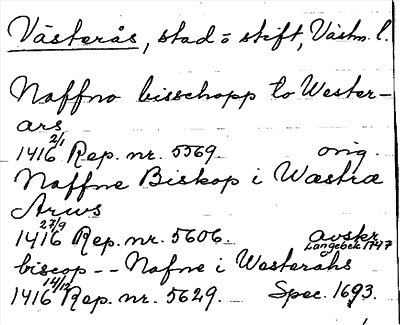 Västerås, stad o stift, Västm. l.
Naffno bisschopp to Wester-
ars
1416 2/1 Rep. nr. 5569. orig.
Naffne Biskop i Wæstræ
Arws
1416 27/9 Rep. nr. 5606. avskr.
Langebek 1747
biscop -- Nafne i Westerahs
1416 14/12 Rep. nr. 5629. Spec. 1693.